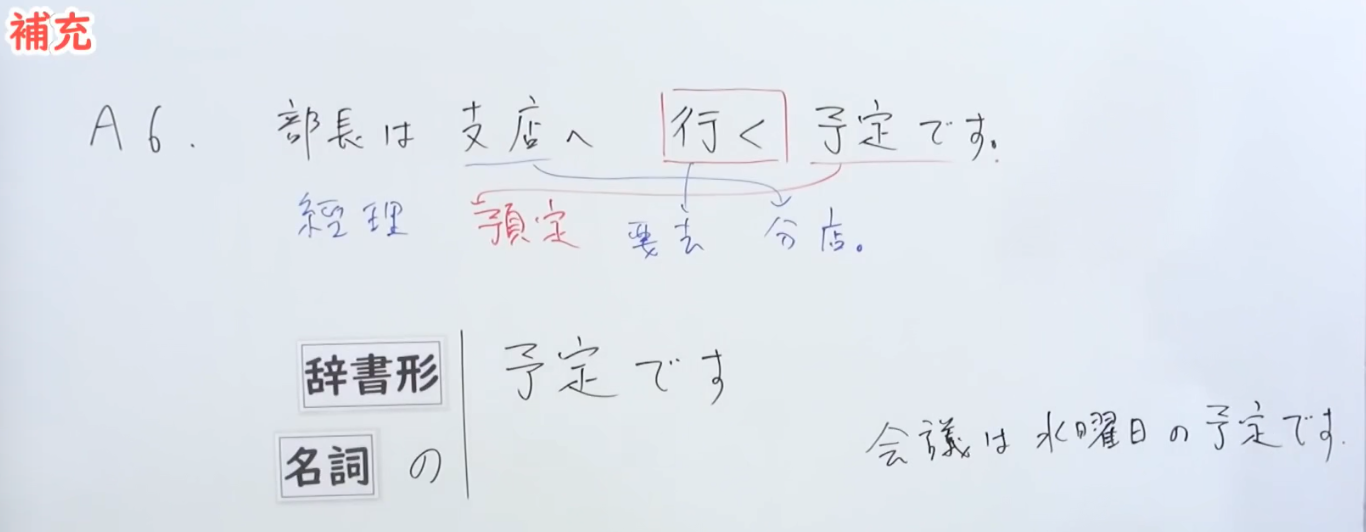 補充
A6. 部長は 支店へ 行く 予定です。
經理 預定 要去 分店。
辞書形 予定です
名詞 の
会議は水曜日の予定です.